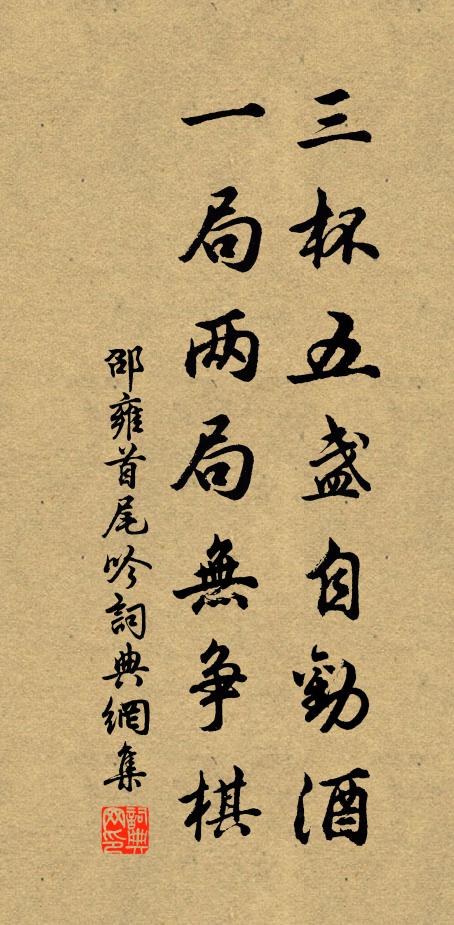 三杯五盞自勸酒
一局两局無争棋
邵雍首尾吟詞典網集
詞典网印